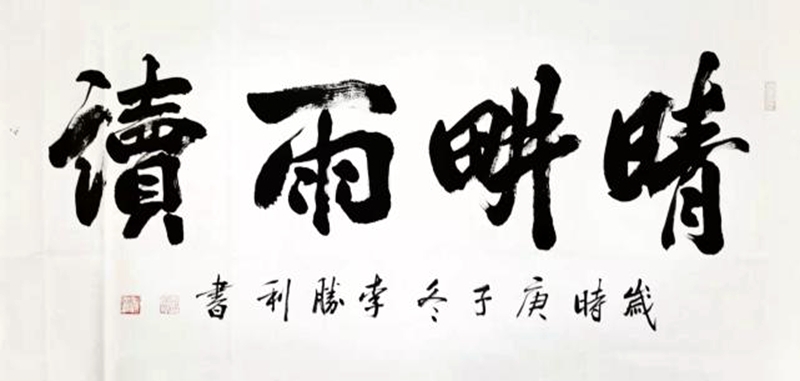 晴畊雨讀
歲時庚子冬李勝利書